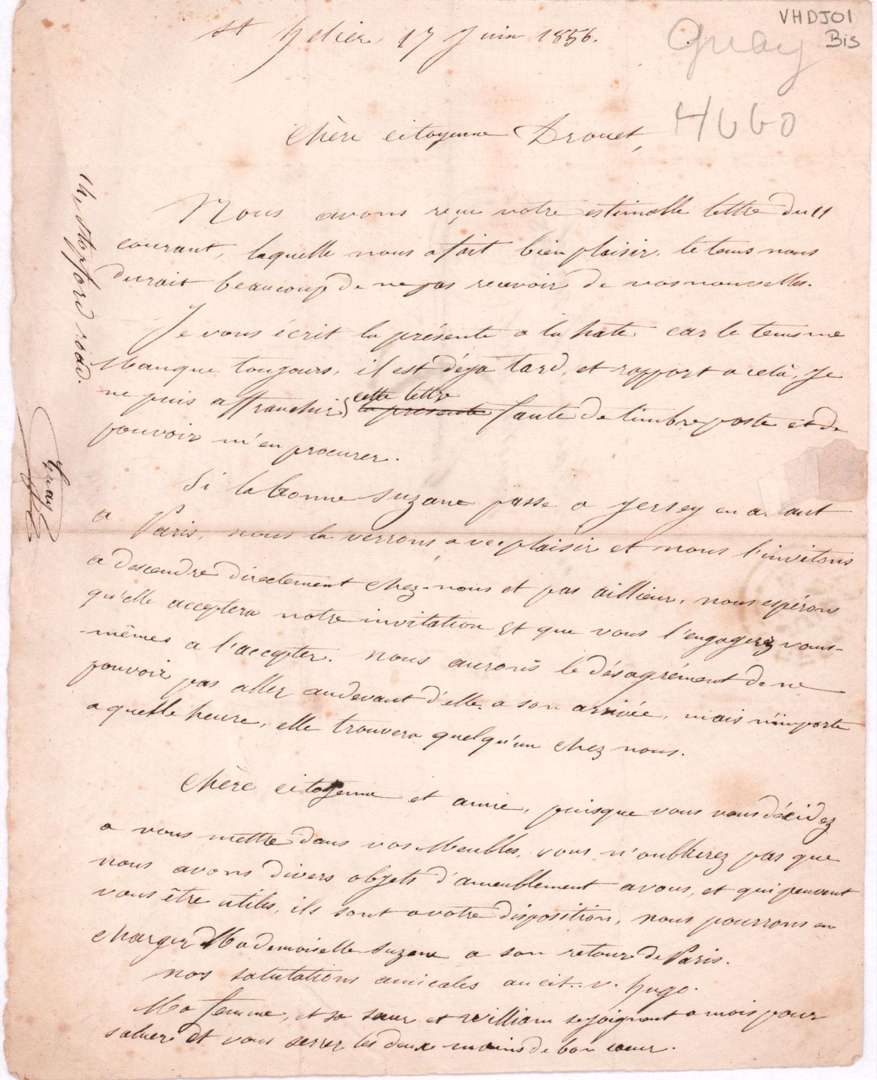 VHDJ01
Bis
Guay
HUGO
St helier 17 Juin 1856.
Chère citoyenne Drouet,
Nous avons reçu votre estimable lettre du 11
courant, laquelle nous a fait bien plaisir. le tems nous
durait beaucoup de ne pas recevoir de vos nouvelles.
Je vous écrit la présente a la hate car le tems me
manque toujours, il est déja tard, et rapport a cela, Je
ne puis affranchir cette lettre la présente faute de timbre poste et de
pouvoir m'en procurer.
Si la bonne Suzane passe a Jersey en allant
a Paris, nous la verrons avec plaisir et nous l'invitons
a descendre directement chez-nous et pas aillieur, nous espérons
qu'elle acceptera notre invitation et que vous l'engagerez vous-
mêmes a l'accepter. nous aurons le désagrément de ne
pouvoir pas aller audevant d'elle a son arrivée, mais n'importe
a quelle heure, elle trouvera quelqu'un chez nous.
Chère citoyenne et amie, puisque vous vous décidez
a vous mettre dans vos Meubles, vous n'oublierez pas que
nous avons divers objets d'ameublement a vous, et qui peuvent
vous être utiles, ils sont a votre disposition, nous pourrons en
charger Mademoiselle Suzane a son retour de Paris.
nos salutations amicales au cit. v. hugo.
Ma femme, et sa sœur et William se joignent a mois pour
saluer et vous serrer les deux mains de bon cœur.
14, road.
Guay